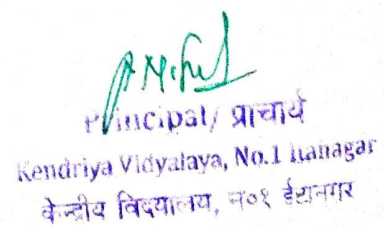 Principal/ प्राचार्य
Kendriya Vidyalaya, No.1 Itanagar
केन्द्रीय विद्यालय, न०१ ईटानगर